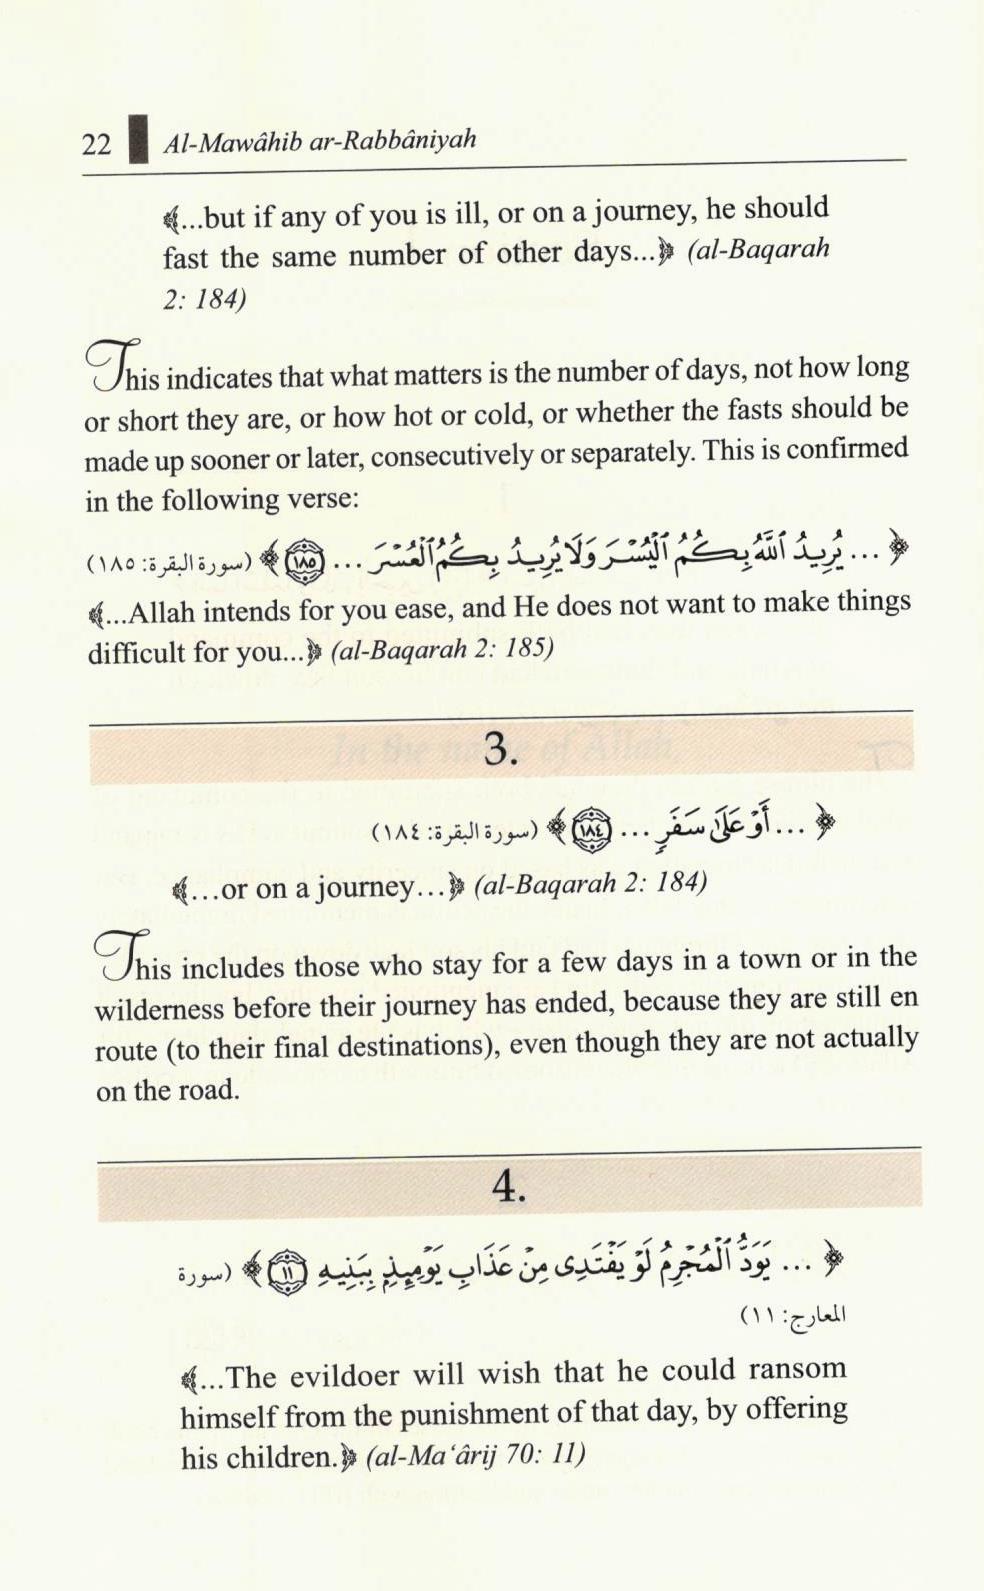 22 Al-Mawâhib ar-Rabbâniyah
﴾...but if any of you is ill, or on a journey, he should
fast the same number of other days...﴿ (al-Baqarah
2: 184)
This indicates that what matters is the number of days, not how long
or short they are, or how hot or cold, or whether the fasts should be
made up sooner or later, consecutively or separately. This is confirmed
in the following verse:
﴿ ... يُرِيدُ ٱللَّهُ بِكُمُ ٱلْيُسْرَ وَلَا يُرِيدُ بِكُمُ ٱلْعُسْرَ ... ١٨٥ ﴾ (سورة البقرة: ١٨٥)
﴾...Allah intends for you ease, and He does not want to make things
difficult for you...﴿ (al-Baqarah 2: 185)
3.
﴿ ... أَوْ عَلَىٰ سَفَرٍ ... ١٨٤ ﴾ (سورة البقرة: ١٨٤)
﴾...or on a journey...﴿ (al-Baqarah 2: 184)
This includes those who stay for a few days in a town or in the
wilderness before their journey has ended, because they are still en
route (to their final destinations), even though they are not actually
on the road.
4.
﴿ ... يَوَدُّ ٱلْمُجْرِمُ لَوْ يَفْتَدِى مِنْ عَذَابِ يَوْمِئِذٍۭ بِبَنِيهِ ١١ ﴾ (سورة
المعارج: ١١)
﴾...The evildoer will wish that he could ransom
himself from the punishment of that day, by offering
his children.﴿ (al-Ma‘ârij 70: 11)